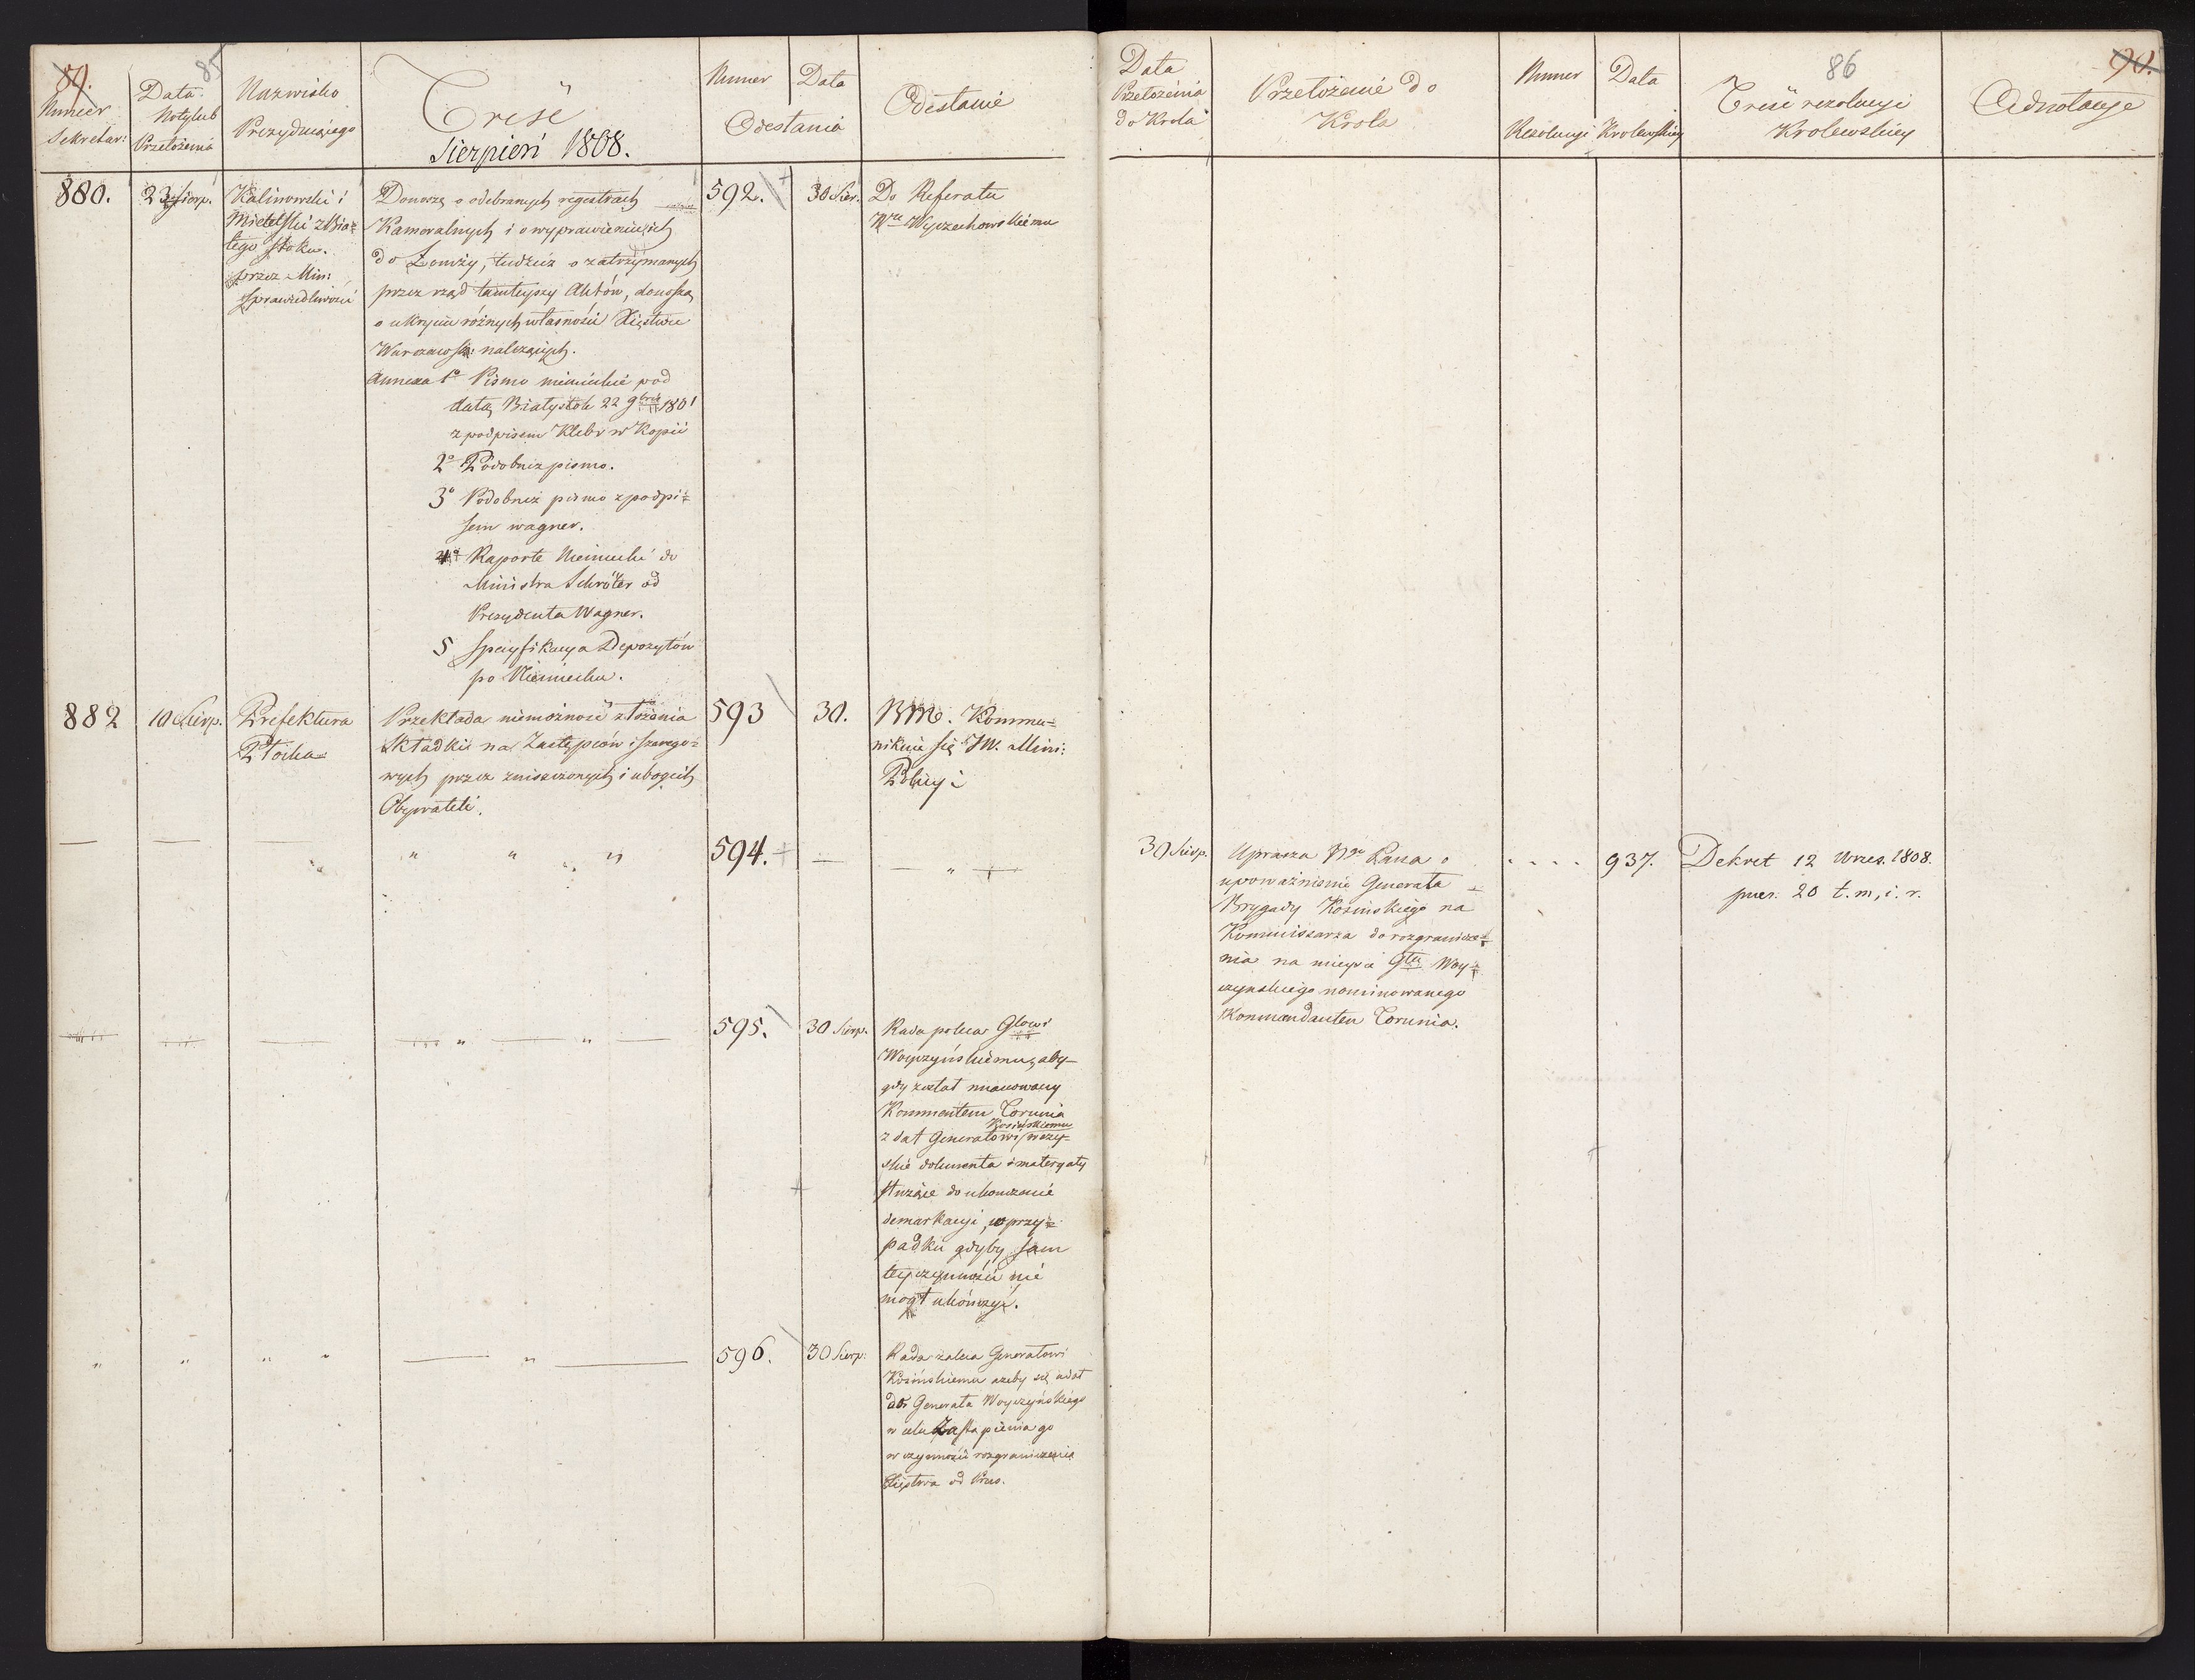 89.
85
Numer
Sekretar:
Data
Noty lub
Przełożenia
Nazwisko
Prezyduiącego
Treść
Sierpień 1808.
Numer
Data
Odesłania
Odesłanie
880.
23 Sierp.
Kalinowski i
Mielelski z Bia=
łego stoku.
przez Min:
Sprawiedliwości
Donoszą o odebranych regestrach
Kameralnych i o wyprawieniu ich
do Łomży, tudzież o zatrzymanych
przez rząd tamteyszy Aktów, donoszą
o ukryciu różnych własności Xięstwu
Warszawsk: należących.
Annexa 1º Pismo niemieckie pod
datą Białystok 22 9bris 1801
z podpisem Klebs w Kopii
2º Podobnież pismo.
3º Podobnież pismo z podpi=
sem Wagner.
4º Raporta Niemiecki do
Ministra Schröter od
Prezydenta Wagner.
5 Specyfikacya Depozytów
po Niemiecku.
592.
30 Sier.
Do Referatu
Wmu Wyczechowskiemu
882
10 Sierp.
Prefektura
Płocka
Przekłada niemożność złożenia
składki na Zastępców i szerego=
wych przez zniszczonych i ubogich
Obywateli.
593
30.
BM. Kommu=
nikuie się JW. Mini:
Policyi
594.
595.
30 Sierp.
Rada poleca Głowi
Woyczyńskiemu, aby
gdy został mianowany
Kommentem Torunia
zdał Generałowi Kosińskiemu wszy=
stkie dokumenta i materyały
służące do ukończenie
demarkacyi, w przy=
padku gdyby sam
tey czynności nie
mógł ukończyć.
596.
30 Sierp.
Rada zaleca Generałowi
Kosińskiemu ażeby się udał
do Generała Woyczyńskiego
w celu Zastąpienia go
w czynności rozgraniczenia
Xięstwa od Prus.
Data
Przełożenia
do Króla
Przełożenie do
Króla
Numer
Data
Rezolucyi Krolewskiey
86
Treść rezolucyi
Krolewskiey
90.
Adnotacye
30 Sierp.
Uprasza Ngo Pana o
upoważnienie Generała
Brygady Kosinskiego na
Kommissarza do rozgranicze=
nia na mieysce Gła Woy=
czynskiego nominowanego
Kommendantem Torunia.
. . . .
937.
Dekret 12 Wrzes. 1808.
prez. 20 t. m, i. r.